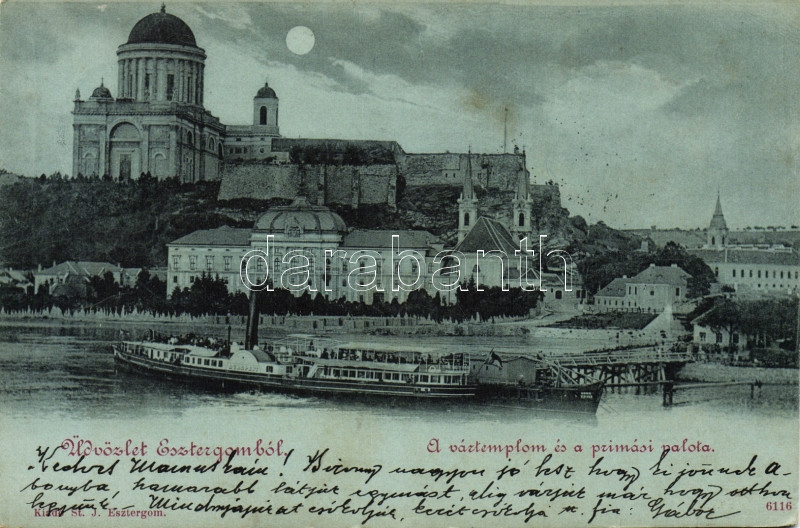 darabanth
Üdvözlet Esztergomból. A vártemplom és a primási palota.
Kedves Mamuskáim! Bizony nagyon jó lesz hogy ki jönnek A-
bonyba, hamarabb látjuk egymást, alig várjuk már hogy otthon
legyünk. Mindnyájukat csókoljuk, kezét csókolja fia: Gábor
Kiadja St. J. Esztergom. 6116